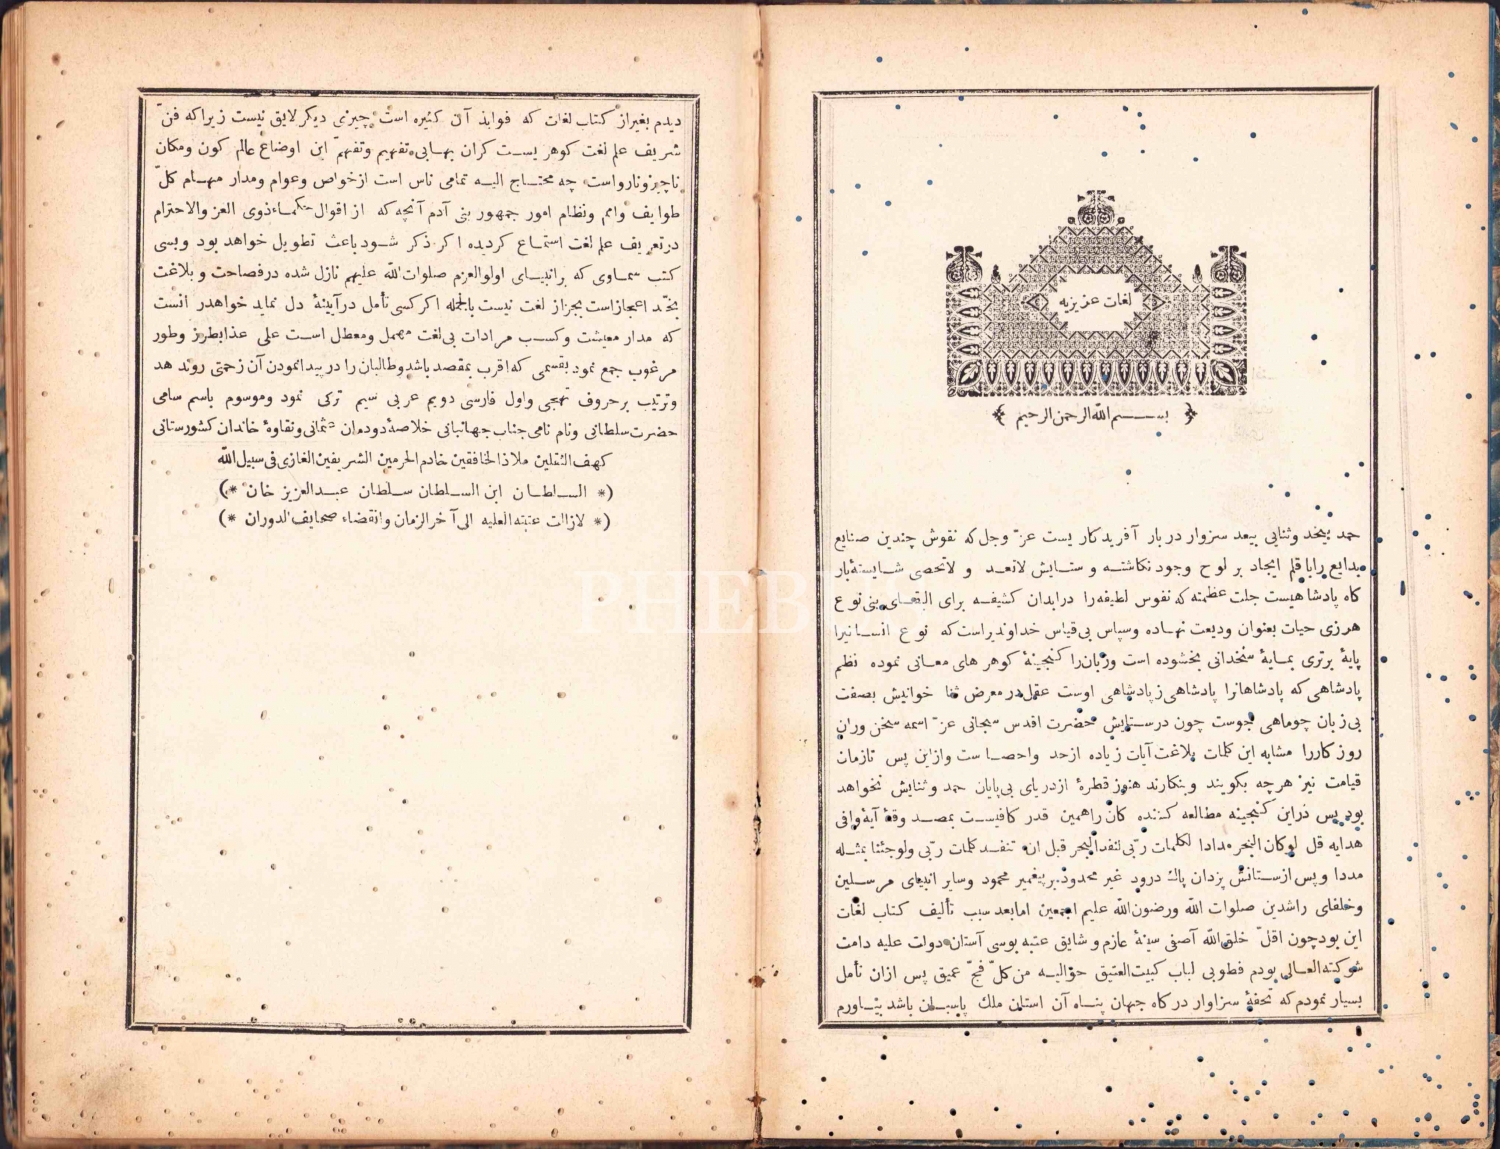 لغات عزیزیه
بســـم الله الرحمن الرحیم
حمد بیحد وثنایی بیعد سزوار دربار آفریدکار یست عزّ وجل که نقوش چندین صنایع
بدایع رابا قلم ایجاد بر لوح وجود نکاشته و ستایش لاتعد و لاتحصی شایستهٔ بار
کاه پادشاهیست جلت عظمته که نفوس لطیفه را درابدان کثیفه برای بنی نوع
هرزی حیات بعنوان ودیعت نهاده وسپاس بی قیاس خداوندیراست که نوع انسانیرا
پایهٔ برتری بمایهٔ سخندانی بخشوده است وزبان را کنجینهٔ کوهر های معانی نموده نظم
پادشاهی که پادشاهانرا پادشاهی ز پادشاهی اوست عقل در معرض ثنا خوانیش بصفت
بی زبان چوماهی جوست چون درستایش حضرت اقدس سبحانی عزّ اسمه سخن وران
روز کاررا مشابه این کلمات بلاغت آیات زیاده ازحد واحصا ست وازاین پس تازمان
قیامت نیز هرچه بکویند وبنکارند هنوز قطرهٔ ازدریای بی پایان حمد وثنایش نخواهد
بود پس دراین کنجینه مطالعه کننده کان راهمین قدر کافیست بمصد وقهٔ آیهٔ وافی
هدایه قل لوکان البحر مدادا لکلمات ربّی لنفد البحر قبل ان تنفد کلمات ربّی ولوجئنا بمثله
مددا وپس ازستایش یزدان پاک درود غیر محدود بر پیغمبر محمود وسایر انبیای مرسلین
وخلفای راشدین صلوات الله ورضون الله علیهم اجمعین امابعد سبب تألیف کتاب لغات
این بود چون اقلّ خلق الله آصفی سینهٔ عازم وشایق عتبه بوسی آستان دولت علیه دامت
شوکته العالی بودم فطوبی لباب کبیت العتیق حوّالیه من کلّ فجّ عمیق پس ازان تأمل
بسیار نمودم که تحفهٔ سزاوار درکاه جهان پناه آن استان ملک پاسبان باشد بیاورم
دیدم بغیراز کتاب لغات که فواید آن کثیره است چیزی دیکر لایق نیست زیراکه فنّ
شریف علم لغت کوهریست کران بهایی تفهیم وتفهّم این اوضاع عالم کون ومکان
ناچیز ونارواست چه محتاج الیه تمامی ناس است ازخواص وعوام ومدار مهام کلّ
طوایف وامم ونظام امور جمهور بنی آدم آنچه که از اقوال حکماء ذوی العز والاحترام
درتعریف علم لغت استماع کردیده اکر ذکر شود باعث تطویل خواهد بود وبسی
کتب سماوی که برانبیای اولوالعزم صلوات الله علیهم نازل شده درفصاحت وبلاغت
بحدّ اعجاز است بجز از لغت نیست بالجمله اکر کسی تأمل درآیینهٔ دل نماید خواهد دانست
که مدار معیشت وکسب مرادات بی لغت مهمل ومعطل است علی هذا بطرز وطور
مرغوب جمع نمود بقسمی که اقرب بمقصد باشد وطالبان را در پیدا نمودن آن زحمتی روند هد
وترتیب بر حروف تهجی واول فارسی دویم عربی سیم ترکی نمود وموسوم باسم سامی
حضرت سلطانی ونام نامی جناب جهانبانی خلاصهٔ دودمان عثمانی ونقاوهٔ خاندان کشورستانی
کهف الثقلین ملاذ الخافقین خادم الحرمین الشریفین الغازی فی سبیل الله
(* السلطان ابن السلطان سلطان عبدالعزیز خان *)
(* لازالت عتبته العلیه الی آخر الزمان وانقضاء صحایف الدوران *)